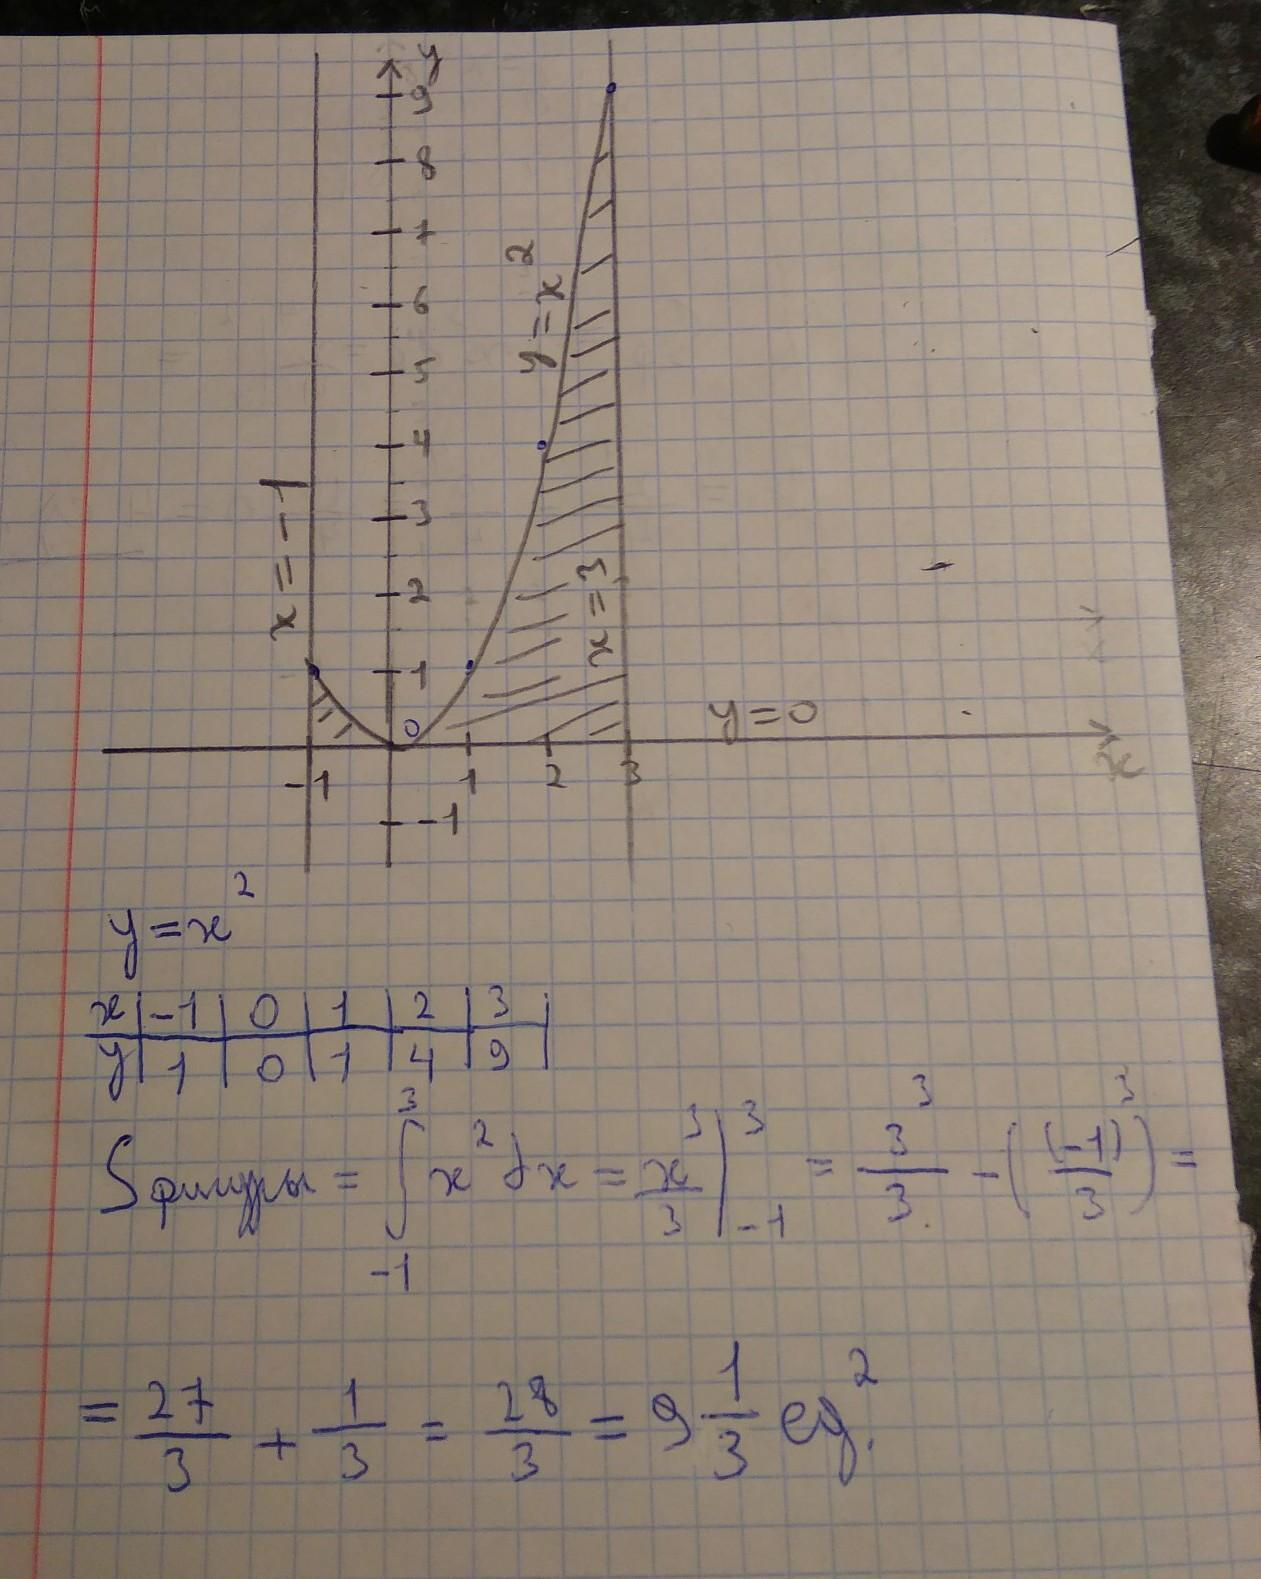 y
9
8
7
6
5
4
3
2
1
0
-1
x = -1
y = x²
x = 3
y = 0
x
-1 1 2 3
y = x²
x | -1 | 0 | 1 | 2 | 3 |
y | 1 | 0 | 1 | 4 | 9 |
S фигуры = ∫₋₁³ x² dx = x³/3 |₋₁³ = 3³/3 - ((-1)³/3) =
= 27/3 + 1/3 = 28/3 = 9 1/3 ед.²